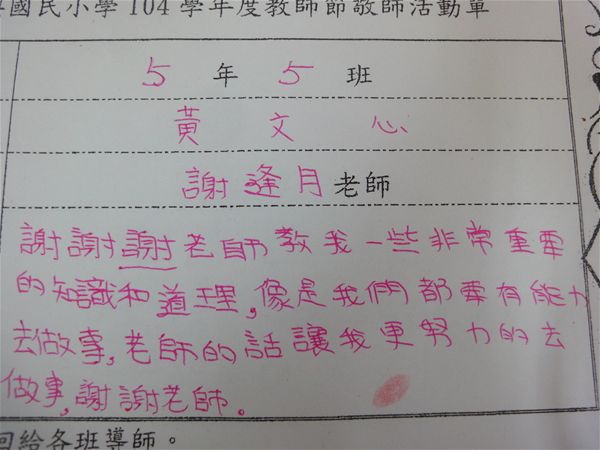 國民小學 104 學年度教師節敬師活動單
5 年 5 班
黃 文 心
謝逢月老師
謝謝謝老師教我一些非常重要
的知識和道理,像是我們都要有能力
去做事,老師的話讓我更努力的去
做事,謝謝老師。
回給各班導師。